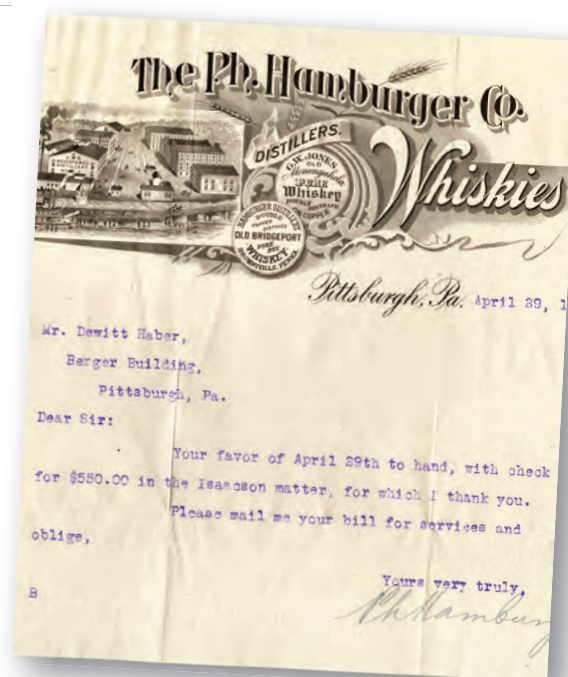 The Ph. Hamburger Co.
DISTILLERS.
Whiskies
G.W. JONES
OLD
Monongahela
PURE
Whiskey
DOUBLE
COPPER
HAMBURGER DISTILLERY
DOUBLE
COPPER
DISTILLED
OLD BRIDGEPORT
PURE RYE
WHISKEY
BROWNSVILLE, PENNA.
Pittsburgh, Pa. April 29, 1
Mr. Dewitt Haber,
Berger Building,
Pittsburgh, Pa.
Dear Sir:
Your favor of April 29th to hand, with check
for $550.00 in the Isaacson matter, for which I thank you.
Please mail me your bill for services and
oblige,
Yours very truly,
Ph Hambur
B